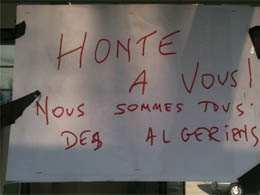 HONTE
A VOUS!
NOUS SOMMES TOUS.
DES ALGERIENS